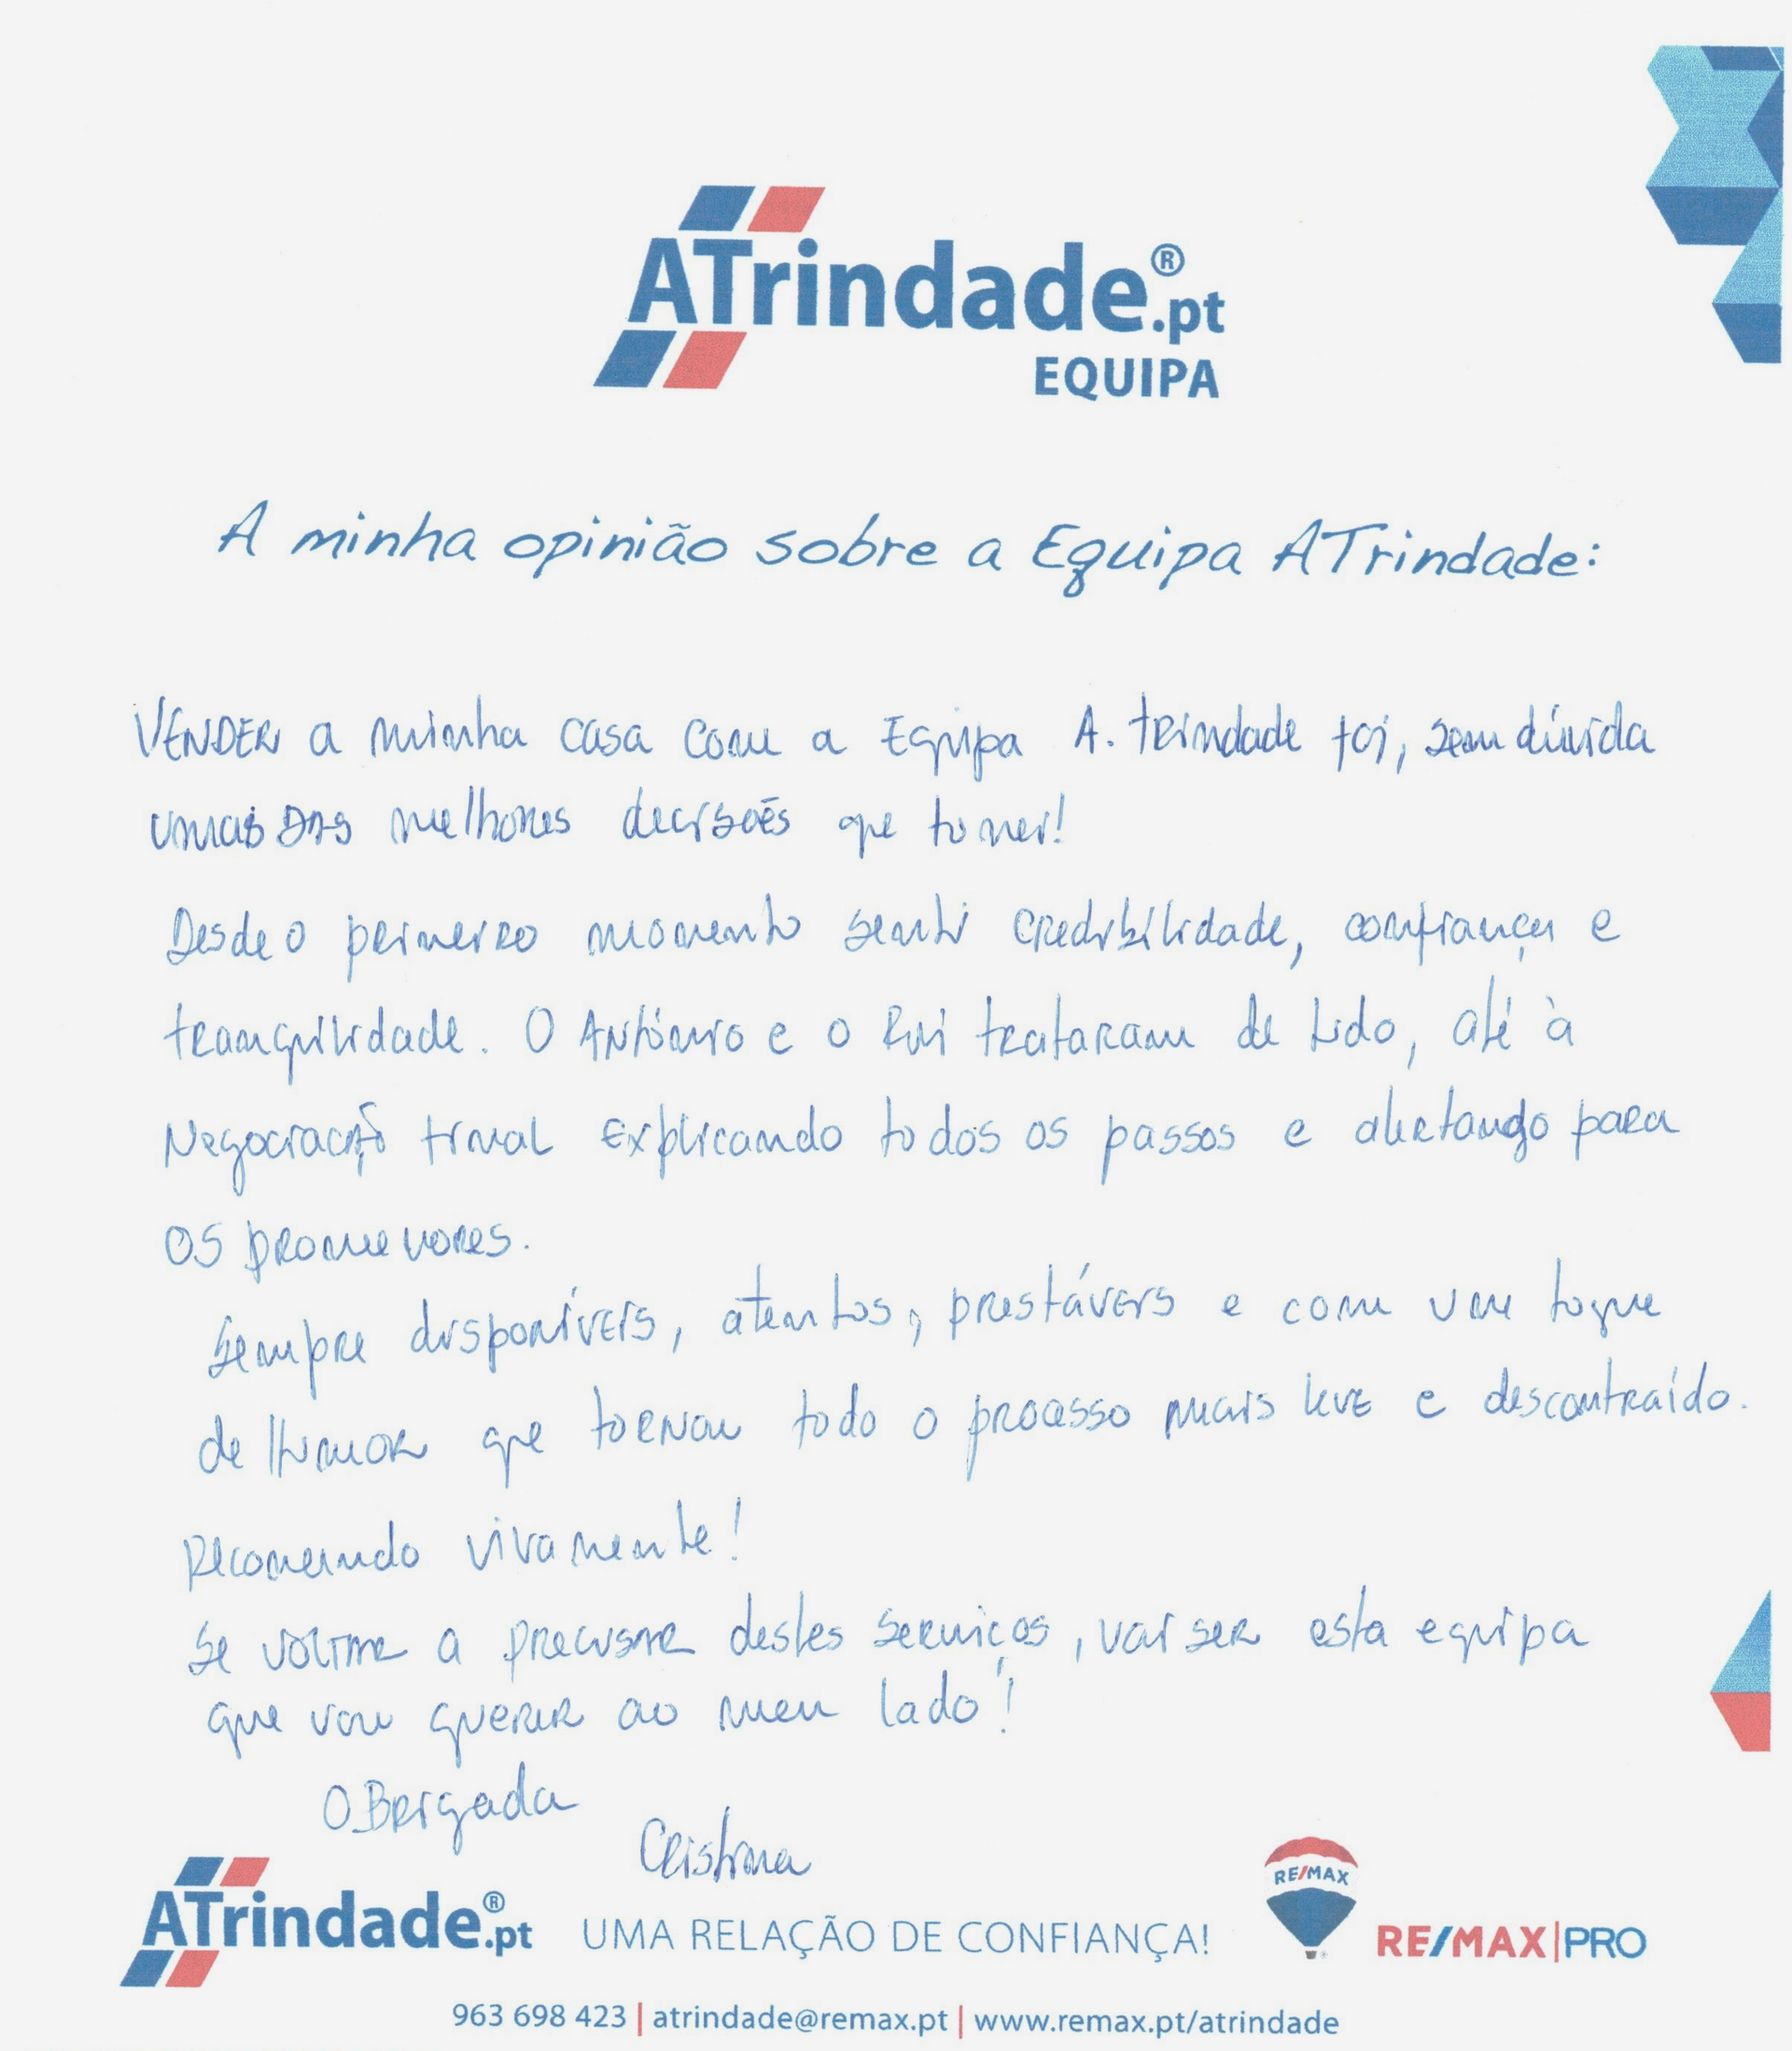 ATrindade®.pt
EQUIPA
A minha opinião sobre a Equipa ATrindade:
VENDER a minha casa com a Equipa A. Trindade foi, sem dúvida
uma das melhores decisões que tomei!
Desde o primeiro momento senti credibilidade, confiança e
tranquilidade. O António e o Rui trataram de tudo, até à
Negociação final explicando todos os passos e alertando para
os pormenores.
Sempre disponíveis, atentos, prestáveis e com um toque
de humor que tornou todo o processo mais leve e descontraído.
Recomendo vivamente!
Se voltar a precisar destes serviços, vai ser esta equipa
que vou querer ao meu lado!
OBrigada
Cristina
ATrindade®.pt UMA RELAÇÃO DE CONFIANÇA! RE/MAX RE/MAX|PRO
963 698 423 | atrindade@remax.pt | www.remax.pt/atrindade